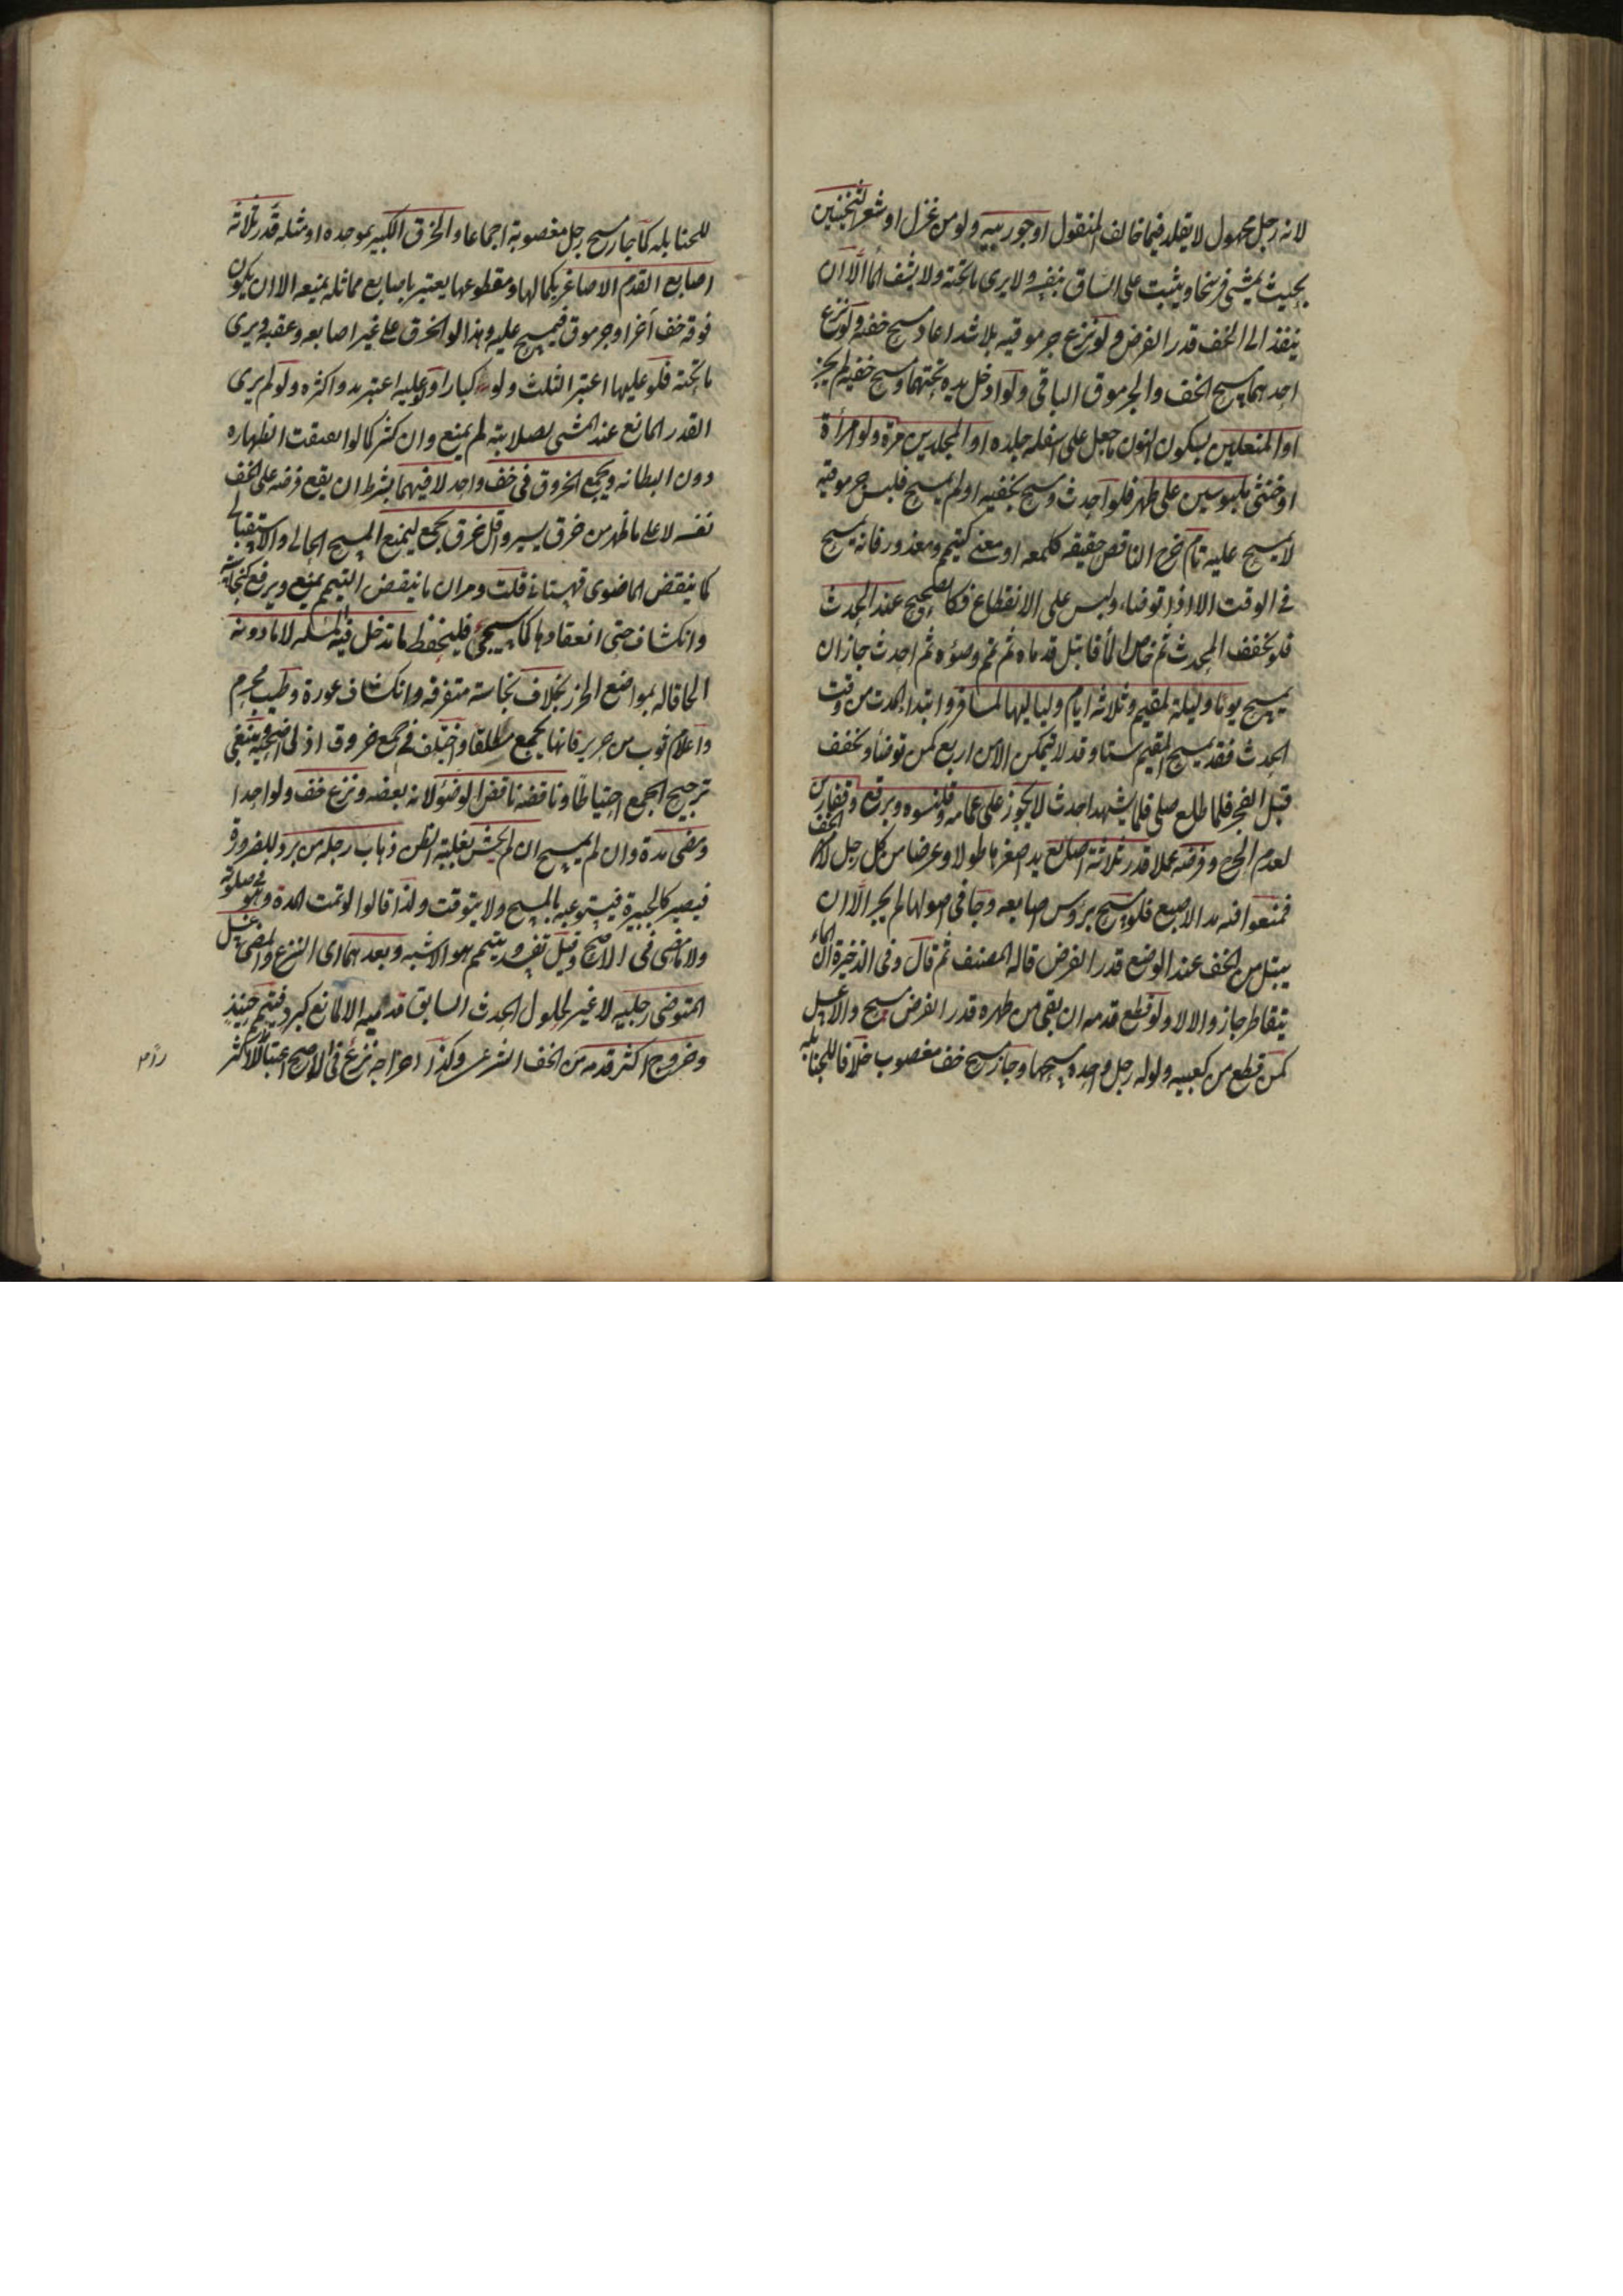 لانه رجل مجهول لا يقلد فيما خالف المنقول او جوربيه ولو من غزل او شعر الثخينين
بحيث يمشي فرسخا ويثبت على الساق بنفسه ولا يرى ما تحته ولا يشف الماء الا ان
ينفذ الى الخف قدر الفرض ولو نزع جرموقيه بلا شد اعاد مسح خفه ولو نزع
احدهما مسح الخف والجرموق الباقي ولو ادخل يده تحتهما ومسح خفيه لم يجز
او المنعلين بسكون النون ما جعل على اسفله جلدة او المجلدين مرة ولو امرأة
او خنثى ملبوسين على طهر فلو احدث ومسح بخفيه او لم يمسح فلبس جرموقيه
لا يمسح عليه تام خرج الناقص حقيقة كلمعة او معنى كتيمم ومعذور فانه يمسح
في الوقت الا اذا توضاء ولبس على الانقطاع فكالصحيح عند الحدث
فلو تخفف المحدث ثم خاض الماء فابتل قدماه ثم تمم وضوءه ثم احدث جاز ان
يمسح يوما وليلة لمقيم وثلاثة ايام ولياليها لمسافر وابتداء المدة من وقت
الحدث فقد يمسح المقيم ستا وقد لا يتمكن الا من اربع كمن توضأ وتخفف
قبل الفجر فلما طلع صلى فلما تشهد احدث لا يجوز على عمامة وقلنسوه وبرقع وقفازين
لعدم الحرج وفرضه عملا قدر ثلاثة اصابع يد اصغرها طولا وعرضا من كل رجل لا من الخف
فمنعوا فيه مد الاصبع فلو مسح برؤس اصابعه وجافى اصولها لم يجز الا ان
يبتل من الخف عند الوضع قدر الفرض قاله المصنف ثم قال وفي الذخيرة ان الماء
يتقاطر جاز والا لا ولو قطع قدمه ان بقي من ظهره قدر الفرض مسح والا غسل
كمن قطع من كعبيه ولو له رجل واحده مسحها وجاز مسح خف مغصوب خلافا للحنابله
للحنابله كما جاز مسح رجل مغصوبة اجماعا والخرق الكبير بموحده او مثلثه قدر ثلاثة
اصابع القدم الاصاغر بكمالها ومقطوعها يعتبر باصابع مماثله يمنعه الا ان يكون
فوقه خف آخر او جرموق فيمسح عليه وهذا لو الخرق على غير اصابعه وعقبه ويرى
ما تحته فلو عليها اعتبر الثلث ولو كبارا ولو عليه اعتبر بدو اكثره ولو لم يرى
القدر المانع عند المشي لصلابته لم يمنع وان كثر كما لو انفتقت الظهاره
دون البطانه ويجمع الخروق في خف واحد لا فيهما بشرط ان يقع فرضه على الخف
نفسه لا على ما ظهر من خرق يسير واقل خرق يجمع ليمنع المسح الحالي والاستقبالي
كما ينقض الماضوى قهستاني قلت ومر ان ناقض التيمم يمنع ويرفع كنجاسة
وانكشاف حتى انعقادها كما سيجئ فليحفظ ما تدخل فيه المسله لا ما دونه
الحاقا له بمواضع الخرز بخلاف نجاسة متفرقه وانكشاف عورة وطيب محرم
واعلام ثوب من حرير فانها يجمع مطلقا واختلف في جمع خروق اذني اضحيه وينبغي
ترجيح الجمع احتياطا وناقضه ناقض الوضوء لانه بعضه ونزع خف ولو واحدا
ومضي مدة وان لم يمسح ان لم يخش بغلبة الظن ذهاب رجله من برد للضرورة
فيصير كالجبيرة فيستوعبه بالمسح ولا يتوقت ولذا قالوا لو تمت المدة وهو في صلوته
ولا ماء مضى في الاصح وقيل تفسد ويتيمم وهو الاشبه وبعدهما اى النزع والمضي غسل
المتوضي رجليه لا غير لحلول الحدث السابق قدميه الا لمانع كبرد فيتيمم حينئذ
وخروج اكثر قدمه من الخف الشرعي وكذا اخراجه نزع في الاصح اعتبارا للاكثر